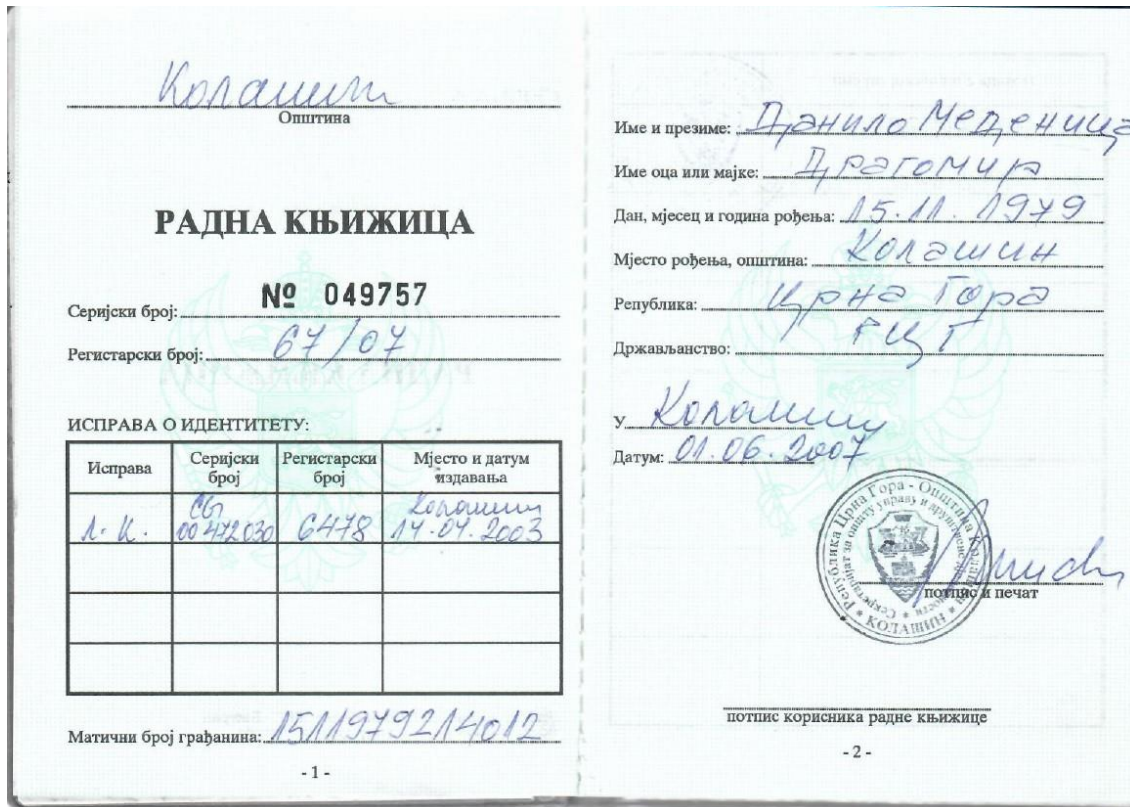 Колашин
Општина
РАДНА КЊИЖИЦА
Серијски број: № 049757
Регистарски број: 67/07
ИСПРАВА О ИДЕНТИТЕТУ:
Исправа Серијски број Регистарски број Мјесто и датум издавања
Л. К. 00472030 6478 Колашин 14.04.2003
Матични број грађанина: 1511979214012
- 1 -
Име и презиме: Данило Меденица
Име оца или мајке: Драгомир
Дан, мјесец и година рођења: 15.11.1979
Мјесто рођења, општина: Колашин
Република: Црна Гора
Држављанство: РЦГ
У Колашину
Датум: 01.06.2007
Република Црна Гора - Општина Колашин
Секретаријат за општу управу и друштвене дјелатности
КОЛАШИН
потпис и печат
потпис корисника радне књижице
- 2 -